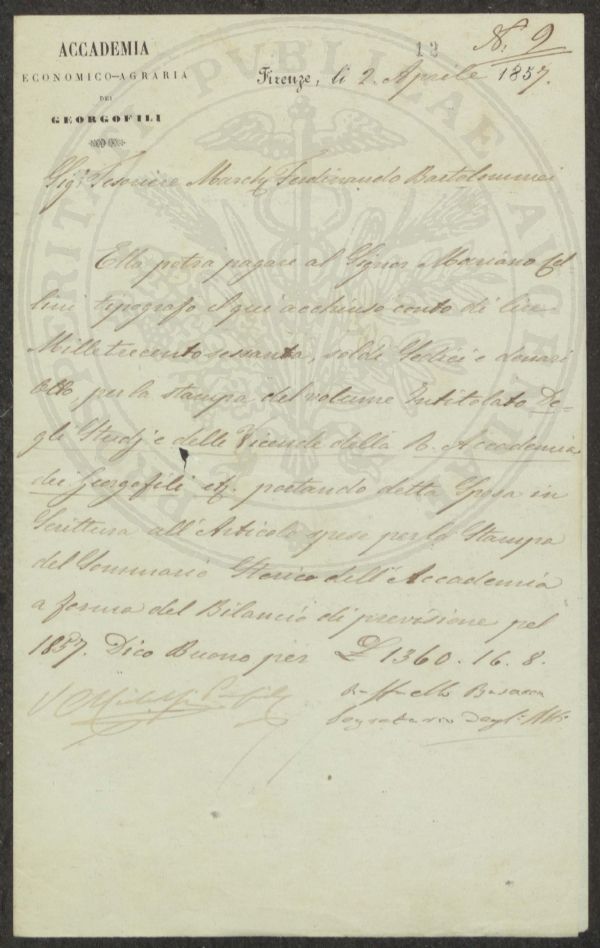 ACCADEMIA
ECONOMICO-AGRARIA
DEI
GEORGOFILI
12
N: 9
Firenze, li 2. Aprile 1857.
Sigr. Tesoriere March. Ferdinando Bartolommei
Ella potrà pagare al Signor Mariano Cel-
lini tipografo il qui acchiuso conto di lire
Milletrecentosessanta, soldi Sedici e denari
Otto, per la stampa del volume Intitolato De-
gli Studj e delle Vicende della R. Accademia
dei Georgofili portando detta Spesa in
Scrittura all'Articolo spese per la Stampa
del Sommario Storico dell'Accademia
a forma del Bilancio di previsione pel
1857. Dico Buono per £ 1360. 16. 8.
Segretario degli Atti
PROSPERITATI PVBLICAE AVGENDAE